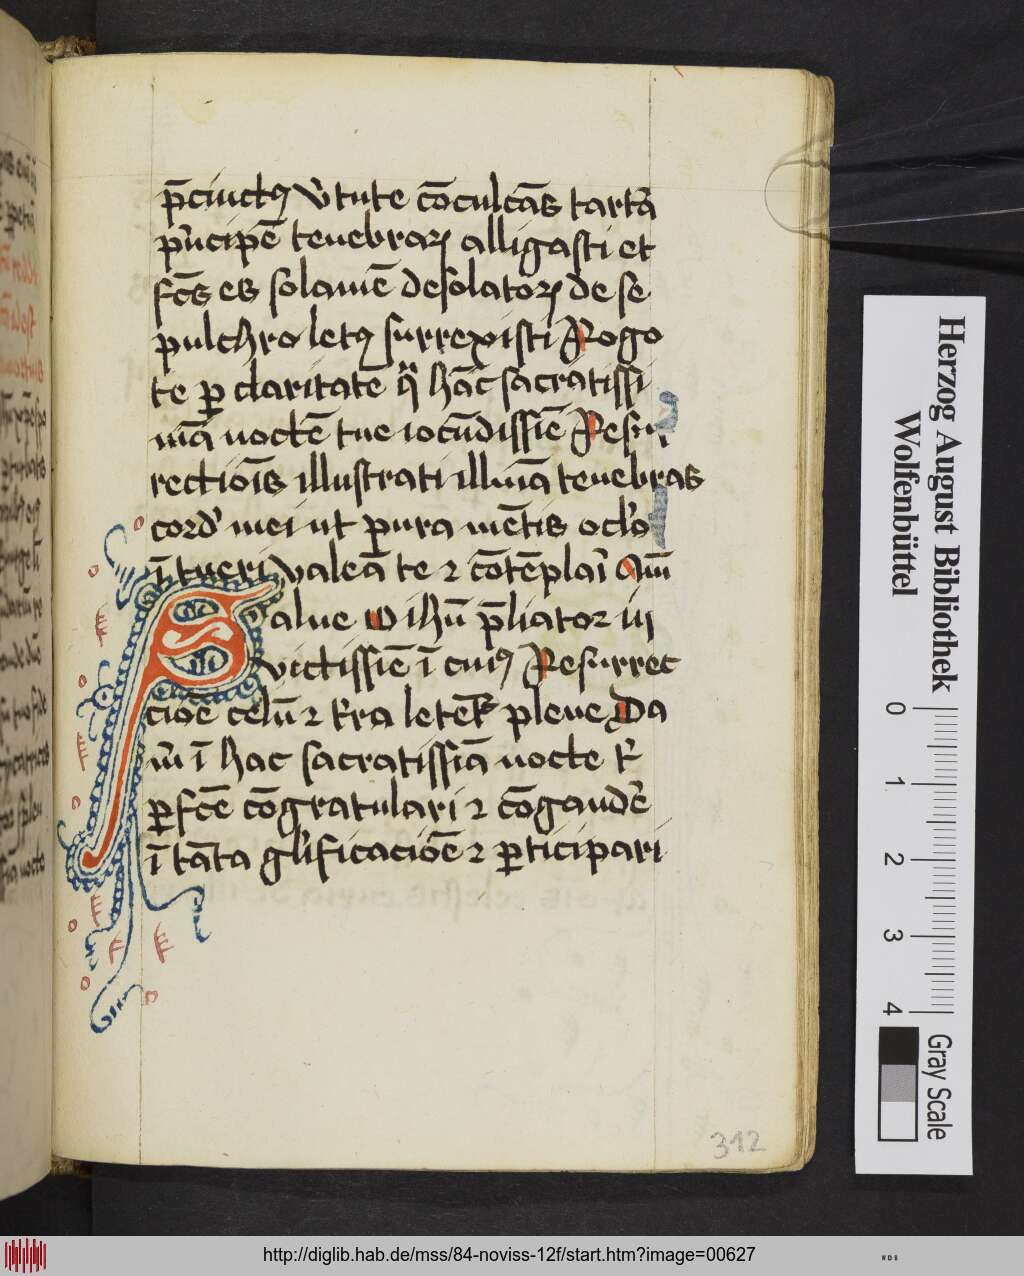 p̄cinctꝯ v̓tute cōculcās tartͣa
pͥncipē tenebraꝝ alligasti et
fc̄s es solamē desolatoꝝ de se
pulchro letꝯ surrexisti Rogo
te ꝑ claritatē qͥ hāc sacratissi
mā noctē tue iocūdissīe Resur
rectiōis illustrasti illumīa tenebras
cord̓ mei ut pura mētis oclo
ī tueri valeā te ⁊ cōtēplaī Am̄
Salue O ihū p̄liator in
victissīe ī cuiꝯ Resurrec
cioē celū ⁊ t̓ra letēt̓ plene Da
m̄ ī hac sacratissīa nocte t̓
ꝑfc̄e cōgratulari ⁊ cōgaudē
ī tāta gl̓ificacioē ⁊ ꝑticipari
312
Herzog August Bibliothek
Wolfenbüttel
0 1 2 3 4
Gray Scale
http://diglib.hab.de/mss/84-noviss-12f/start.htm?image=00627